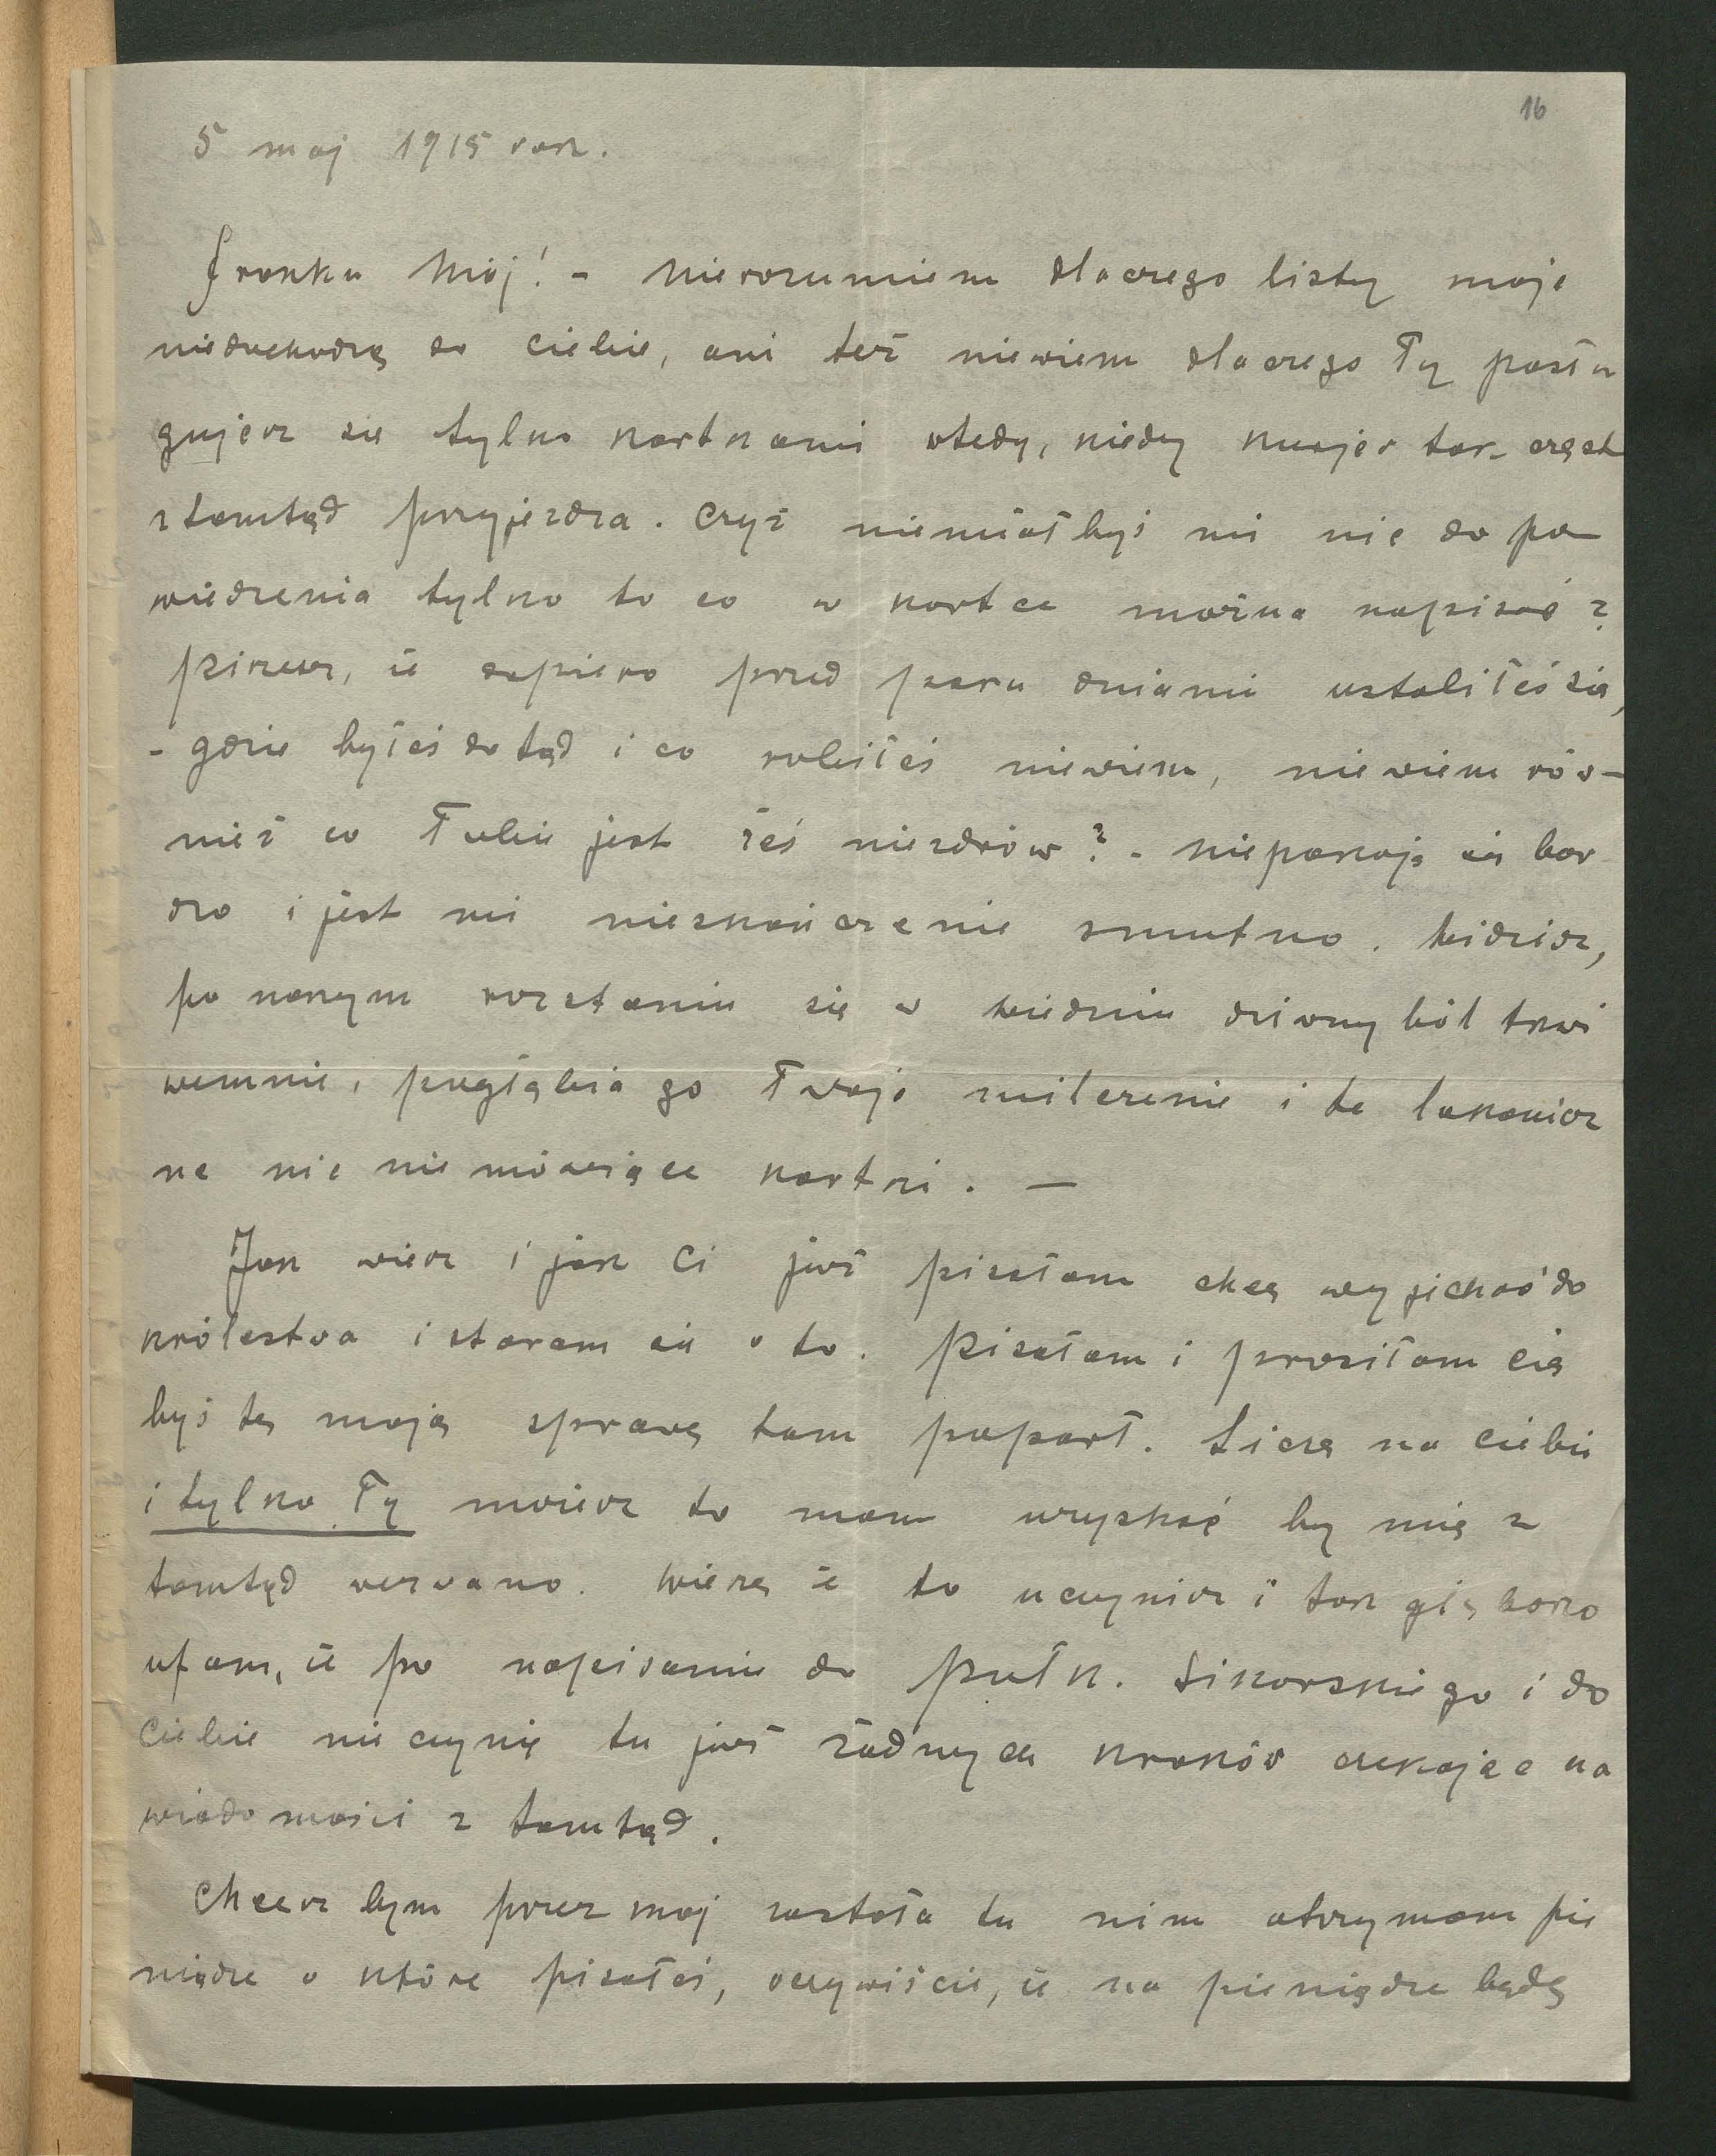 16
5 maj 1915 rok.
Franku Mój! - Nierozumiem dlaczego listy moje
niedochodzą do ciebie, ani też niewiem dlaczego Ty posłu
gujesz się tylko kartkami wtedy, kiedy kurjer tak częst
ztamtąd przyjeżdża. Czyż niemiałbyś mi nic do po
wiedzenia tylko to co w kartce można napisać?
Piszesz, że dopiero przed paru dniami ustaliłeś się,
- gdzie byłeś dotąd i co robiłeś niewiem, niewiem rów-
nież co Tobie jest żeś niezdrów? - Niepokoję się bar
dzo i jest mi nieskończenie smutno. Widzisz,
po naszym rozstaniu się w Wiedniu dziwny ból tkwi
wemnie, pogłębia go Twoje milczenie i te lakonicz
ne nic nie mówiące kartki. —
Jak wiesz i jak Ci już pisałam chcę wyjechać do
Królestwa i staram się o to. Pisałam i prosiłam cię
byś tę moją sprawę tam poparł. Liczę na ciebie
i tylko Ty możesz to mam uzyskać by mię z
tamtąd wezwano. Wierzę że to uczynisz i tak głęboko
ufam, że po napisaniu do pułk. Sikorskiego i do
Ciebie nie czynię tu już żadnych kroków czekając na
wiadomości z tamtąd.
Chcesz bym przez maj została tu nim otrzymam pie
niądze o które pisałeś, oczywiście, że na pieniądze będę